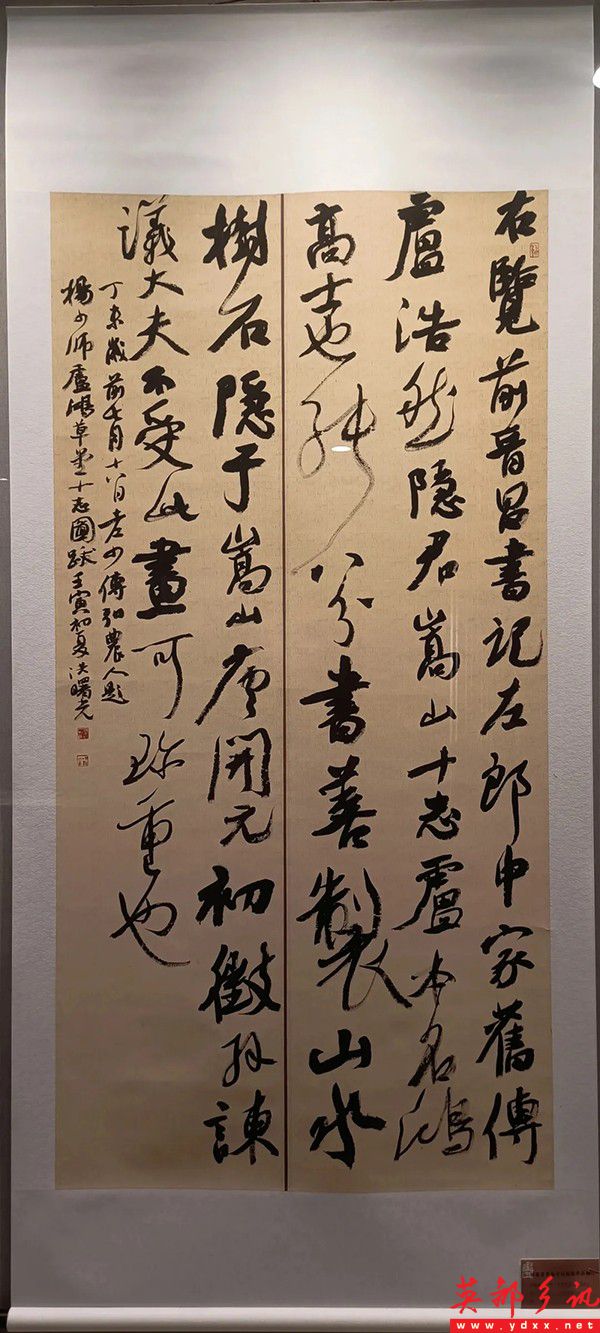 右覽前晉昌書記左郎中家舊傳
盧浩然隱君嵩山十志盧本名鴻
高士也能八分書善製山水
樹石隱于嵩山唐開元初徵拜諫
議大夫不受此畫可珍重也
丁未歲前七月十八日老少傅弘農人題
楊少師盧鴻草堂十志圖跋壬寅初夏洪曙光
英都乡讯
www.ydxx.net